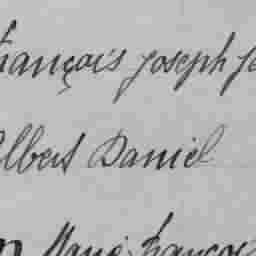 François Joseph
Albert Daniel
Marie françois